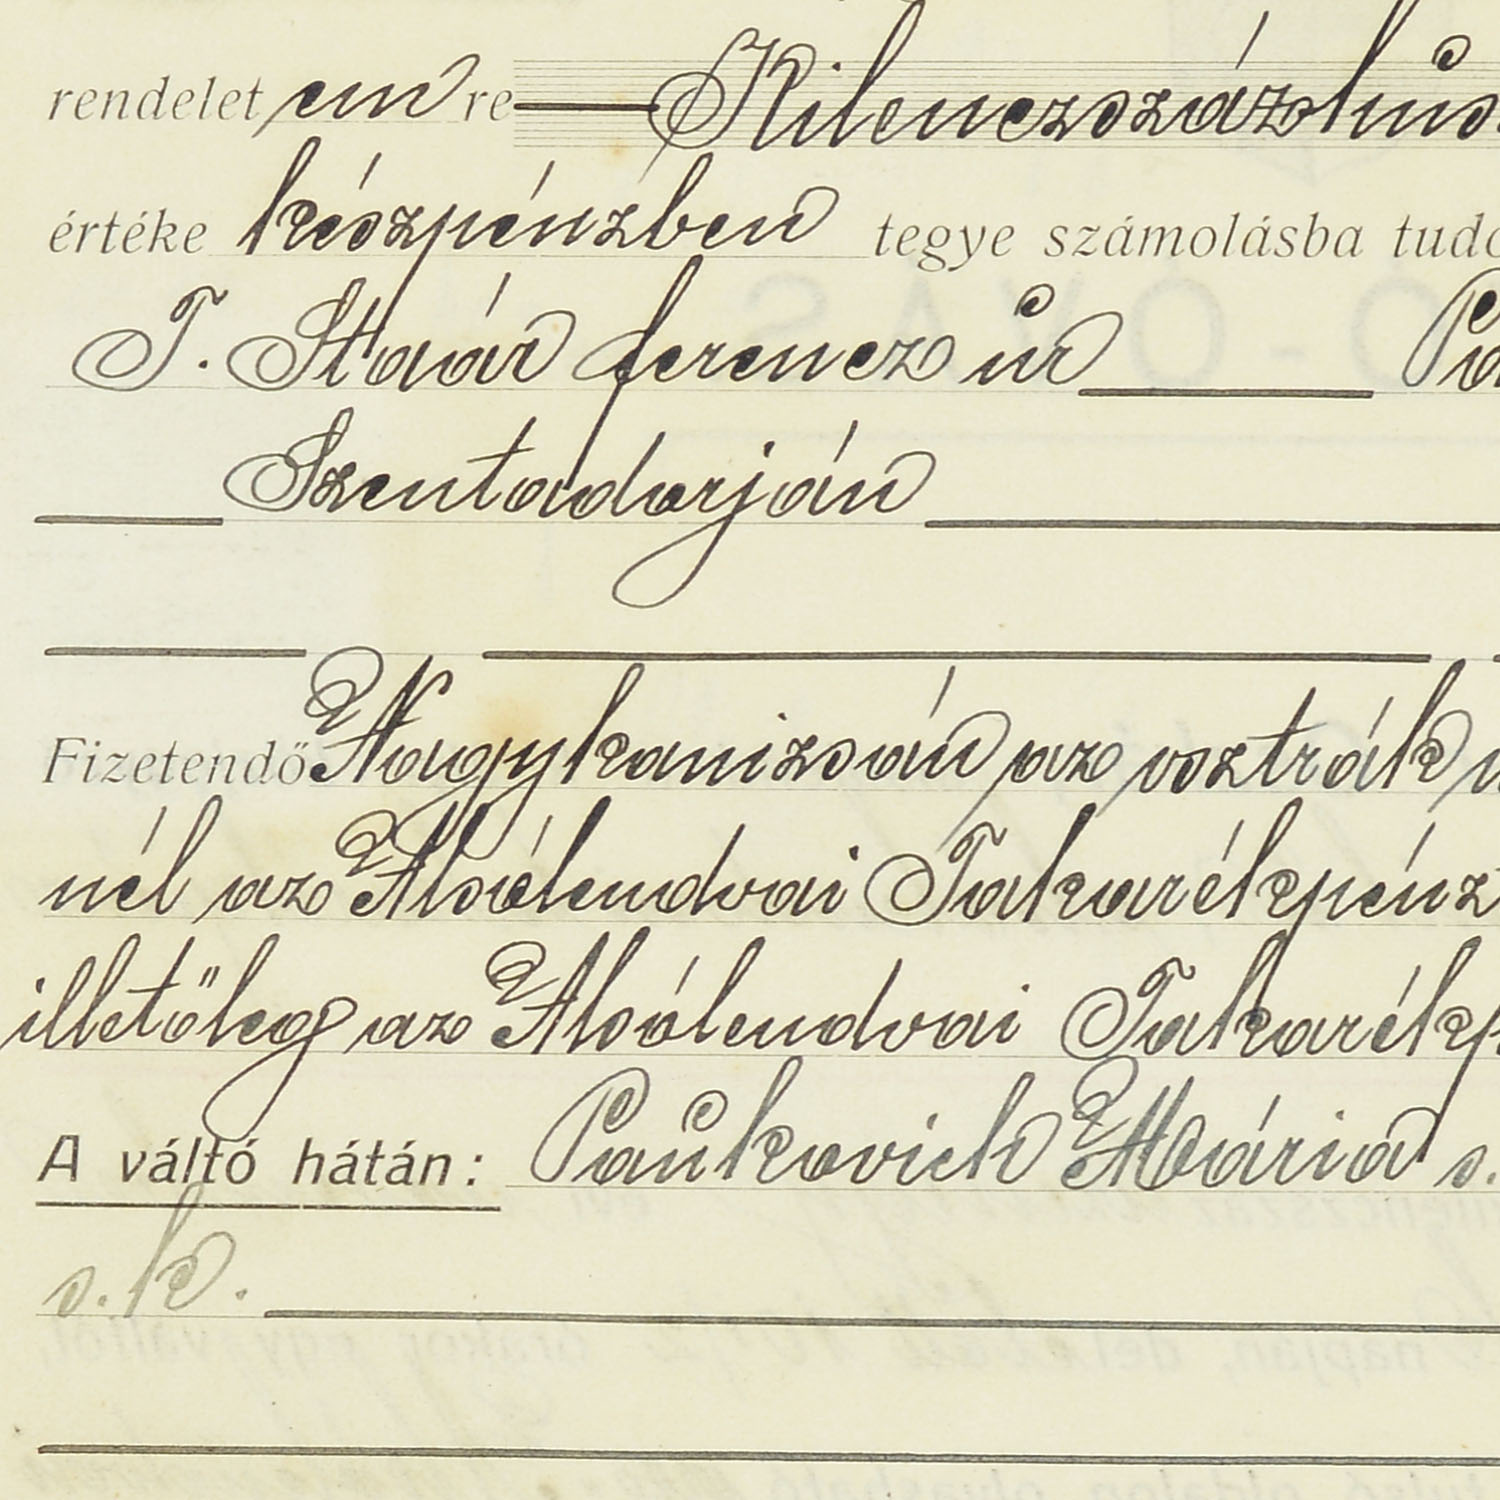 rendelet em re — Kilenczszázhús
értéke készpénzben tegye számolásba tudó
T. Staár ferencz úr — Pa
— Szentadorján —
Fizetendő Nagykanizsán az osztrák
nél az Alsólendvai Takarékpénz
illetőleg az Alsólendvai Takarékp
A váltó hátán: Paukovich Mária s.
s. k.